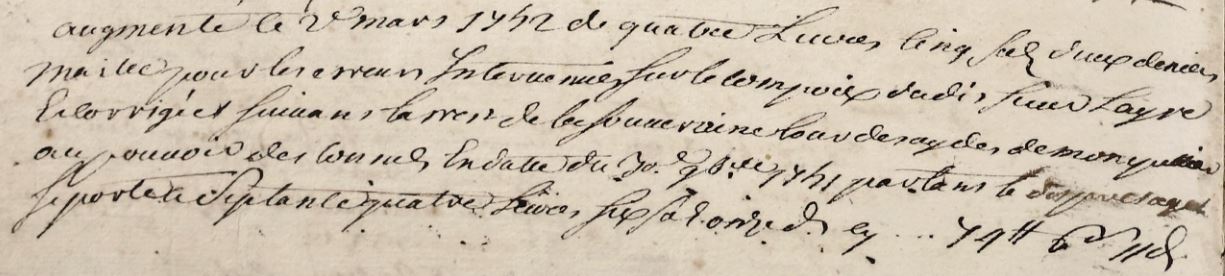 augmenté le 2e mars 1742 de quatre Livres cinq sols deux deniers
maille pour les erreurs Intervenües sur le Compoix dudit sieur Layre
Et Corrigées suivant larrest de la souveraine Cour des aydes de monpellier
au pouvoir des Consuls En datte du 30e 9bre 1741 partant le
se porte a Septante quatre Livres six sols onze d. cy ... 74tt 6s 11d